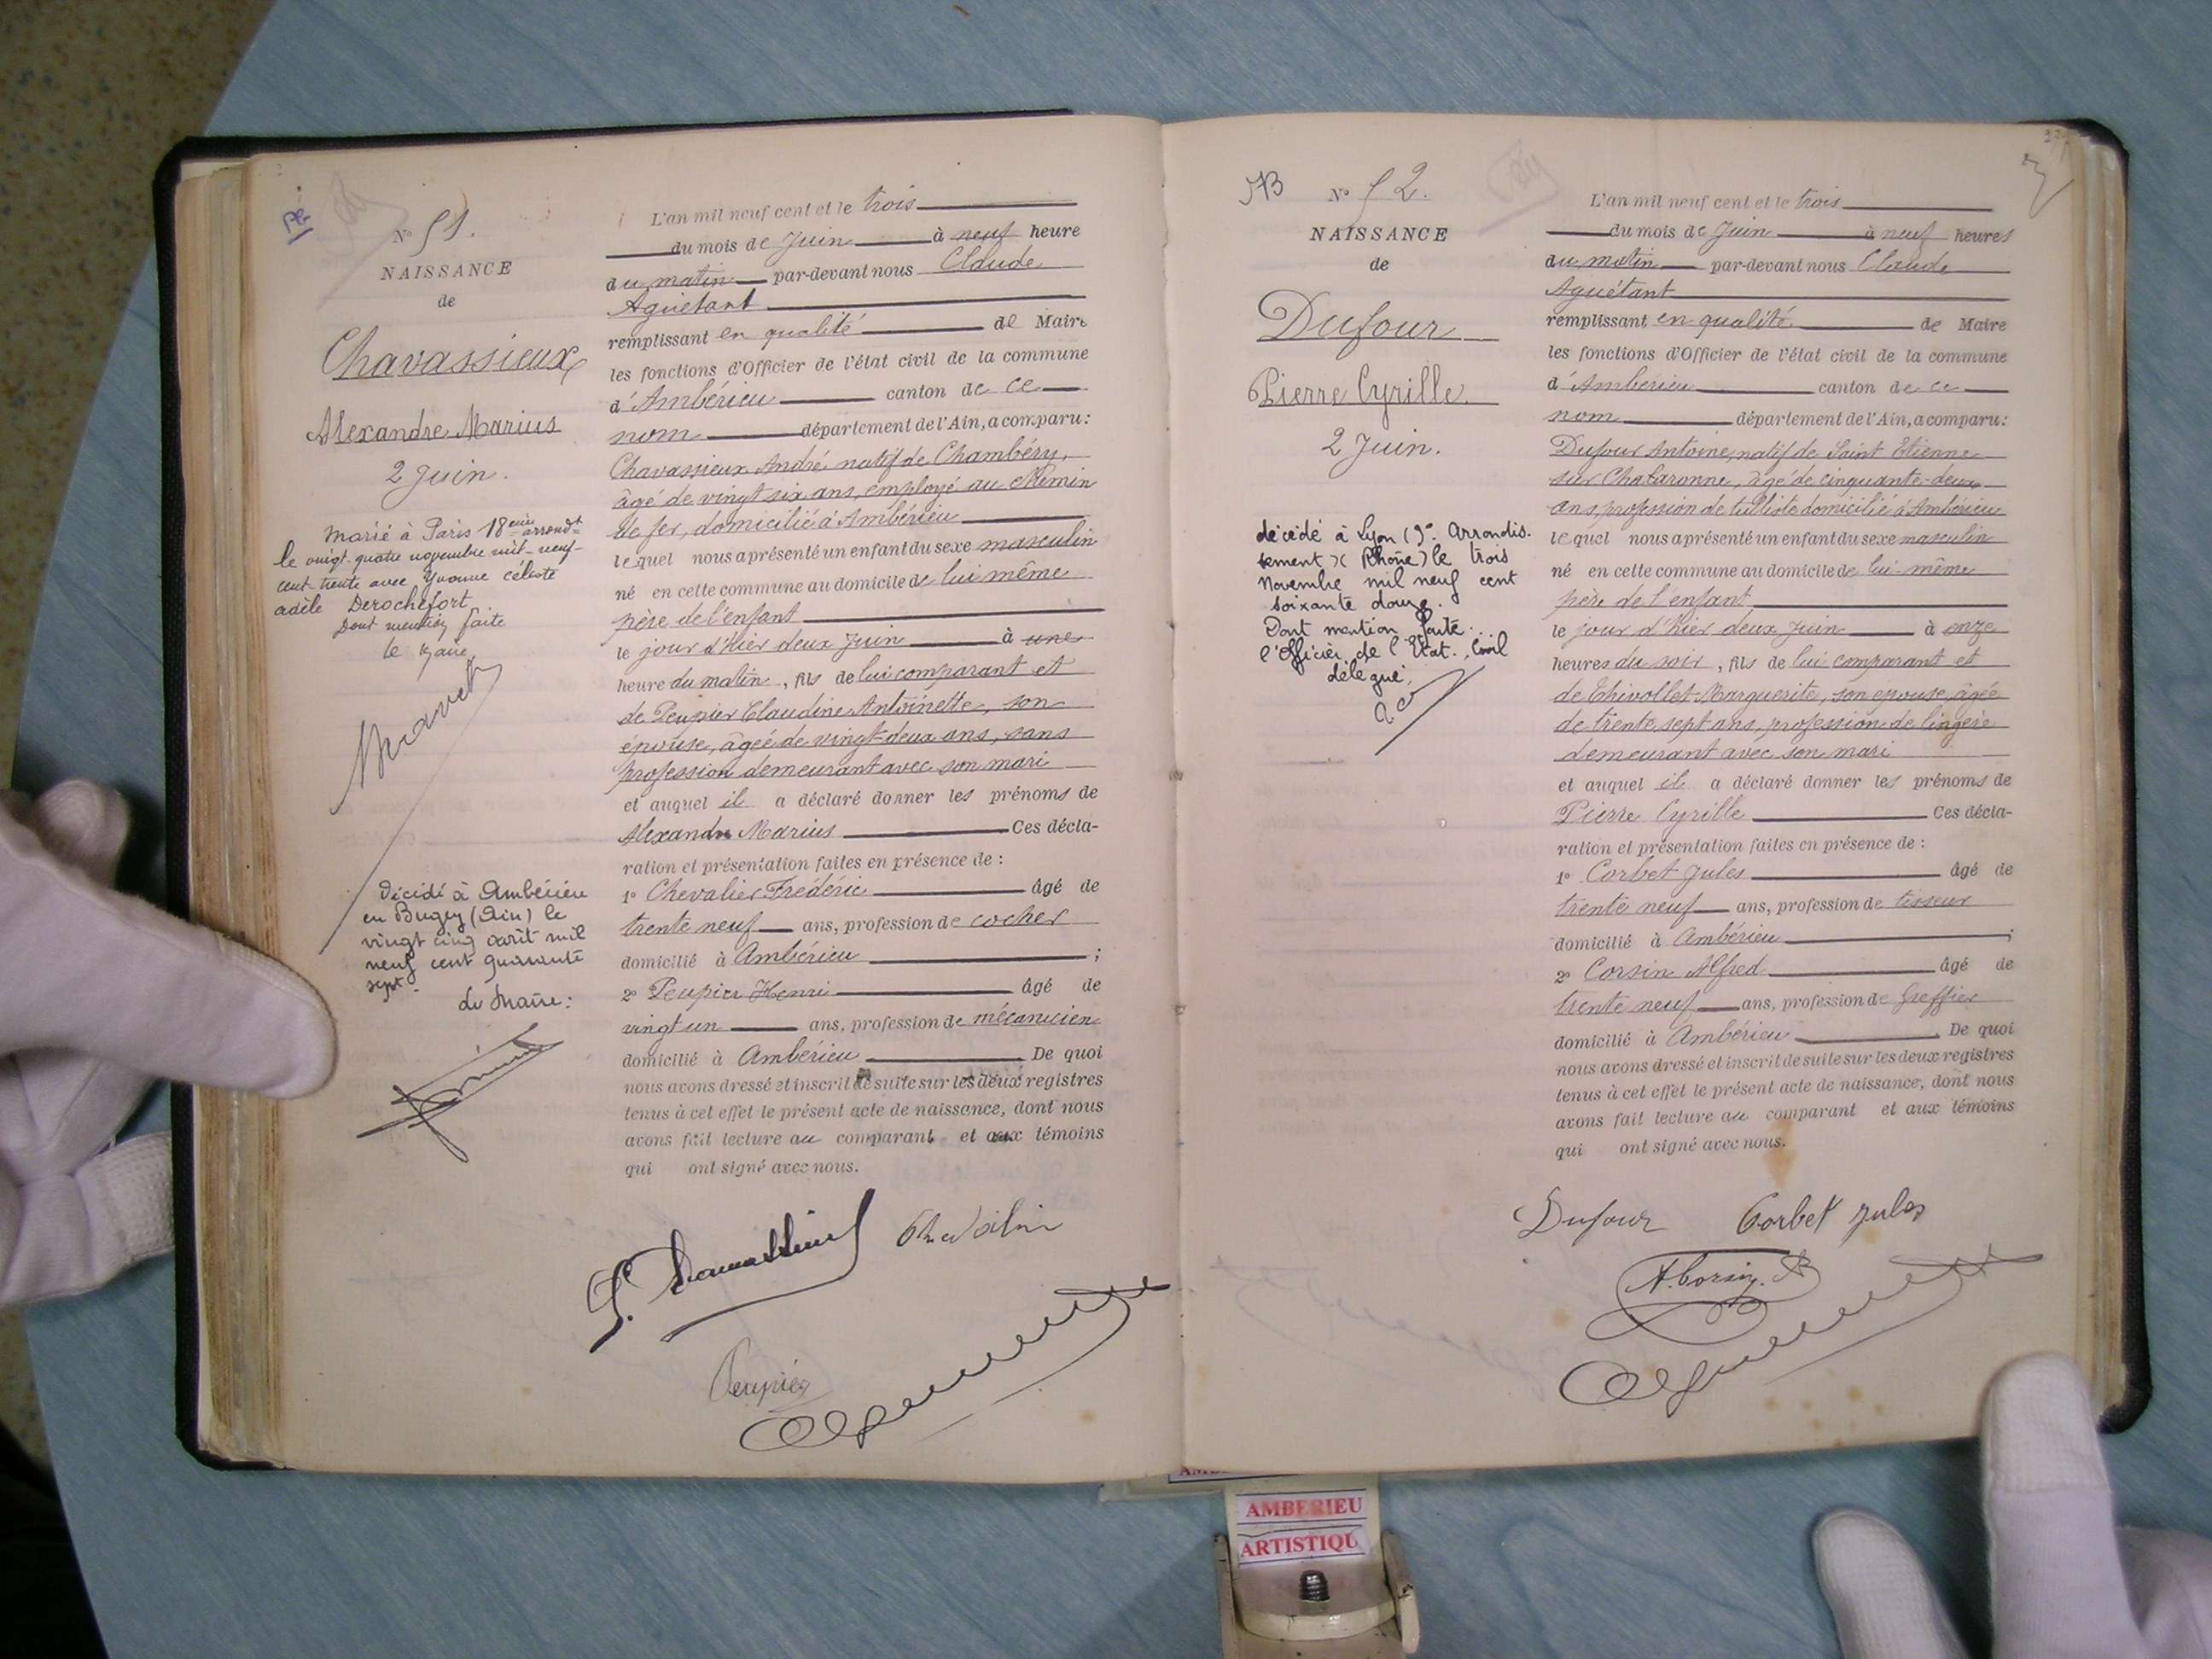 N° 51.
NAISSANCE
de
Chavassieux
Alexandre Marius
2 Juin.
Marié à Paris 18eme arrondt
le vingt-quatre novembre mil-neuf-
cent-trente avec Yvonne Céleste
adèle Derochefort
Dont mention faite
le Maire
Décédé à Ambérieu
en Bugey (Ain) le
vingt cinq août mil
neuf cent quarante
sept.
Le Maire:
L'an mil neuf cent et le trois
du mois de Juin à neuf heure
du matin par-devant nous Claude
Aguétant
remplissant en qualité de Maire
les fonctions d'Officier de l'état civil de la commune
d'Ambérieu canton de ce
nom département de l'Ain, a comparu:
Chavassieux André natif de Chambéry,
âgé de vingt six ans, employé au Chemin
de fer, domicilié à Ambérieu
lequel nous a présenté un enfant du sexe masculin
né en cette commune au domicile de lui même
père de l'enfant
le jour d'hier deux Juin à une
heure du matin, fils de lui comparant et
de Peupier Claudine Antoinette, son
épouse, âgée de vingt-deux ans, sans
profession demeurant avec son mari
et auquel il a déclaré donner les prénoms de
Alexandre Marius Ces décla-
ration et présentation faites en présence de :
1° Chevalier Frédéric âgé de
trente neuf ans, profession de cocher
domicilié à Ambérieu ;
2° Peupier Henri âgé de
vingt un ans, profession de mécanicien
domicilié à Ambérieu De quoi
nous avons dressé et inscrit de suite sur les deux registres
tenus à cet effet le présent acte de naissance, dont nous
avons fait lecture au comparant et aux témoins
qui ont signé avec nous.
Peupier
N° 52.
NAISSANCE
de
Dufour
Pierre Cyrille.
2 Juin.
décédé à Lyon (9e Arrondis.
sement) (Rhône) le trois
Novembre mil neuf cent
soixante douze.
Dont mention faite.
l'Officier de l'Etat. Civil
délégué,
L'an mil neuf cent et le trois
du mois de Juin à neuf heures
du matin par-devant nous Claude
Aguétant
remplissant en qualité de Maire
les fonctions d'Officier de l'état civil de la commune
d'Ambérieu canton de ce
nom département de l'Ain, a comparu:
Dufour Antoine, natif de Saint Etienne
sur Chalaronne, âgé de cinquante-deux
ans, profession de tulliste domicilié à Ambérieu
lequel nous a présenté un enfant du sexe masculin
né en cette commune au domicile de lui-même
père de l'enfant
le jour d'hier deux Juin à onze
heures du soir, fils de lui comparant et
de Chivollet Marguerite, son épouse, âgée
de trente sept ans, profession de lingère
demeurant avec son mari
et auquel il a déclaré donner les prénoms de
Pierre Cyrille Ces décla-
ration et présentation faites en présence de :
1° Corbet Jules âgé de
trente neuf ans, profession de tisseur
domicilié à Ambérieu ;
2° Corsin Alfred âgé de
trente neuf ans, profession de Greffier
domicilié à Ambérieu De quoi
nous avons dressé et inscrit de suite sur les deux registres
tenus à cet effet le présent acte de naissance, dont nous
avons fait lecture au comparant et aux témoins
qui ont signé avec nous.
Dufour Corbet Jules
A. Corsin
AMBERIEU
ARTISTIQU